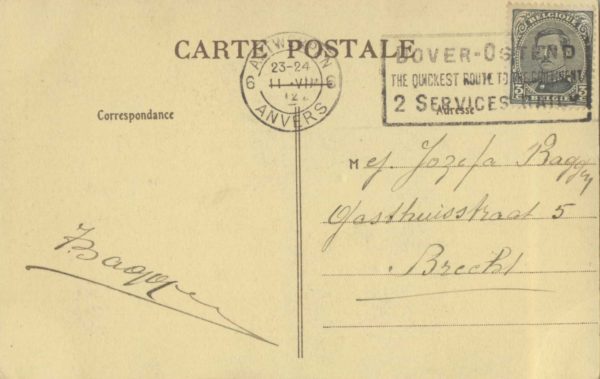 CARTE POSTALE
ANTWERPEN
23-24
11 VIII
6 6
ANVERS
DOVER-OSTEND
THE QUICKEST ROUTE TO THE CONTINENT
2 SERVICES
BELGIQUE
3 3
BELGIE
Correspondance
Adresse
Mej. Jozefa Baggen
Gasthuisstraat 5
Brecht